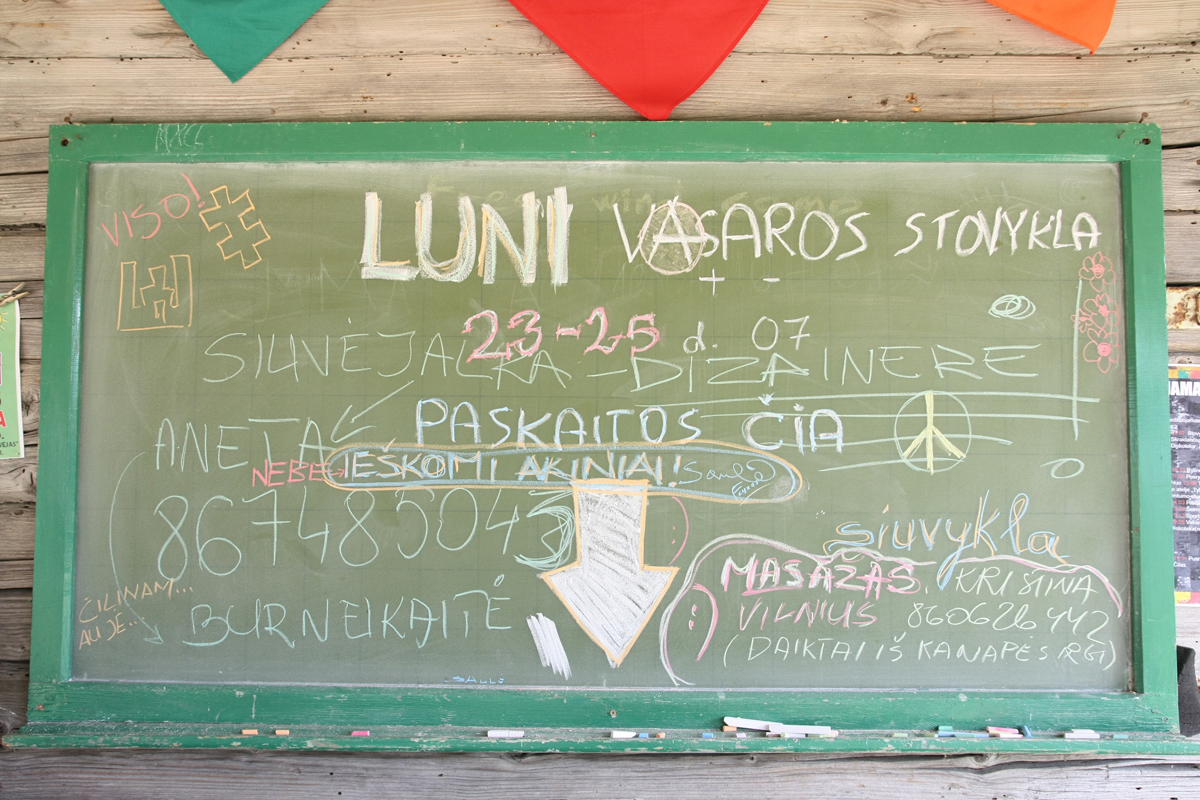 VISO!
LUNI VASAROS STOVYKLA
+ -
23-25 d. 07
SIUVĖJALKA - DIZAINERE
PASKAITOS ČIA
ANETA
NEBE → IEŠKOMI AKINIAI!
867485043
"siuvykla
MASAŽAS. KRISTINA
VILNIUS 860626442
(DAIKTAI IŠ KANAPĖS IRGI)
ČILINAM...
AUJĖ...
BURNEIKAITĖ